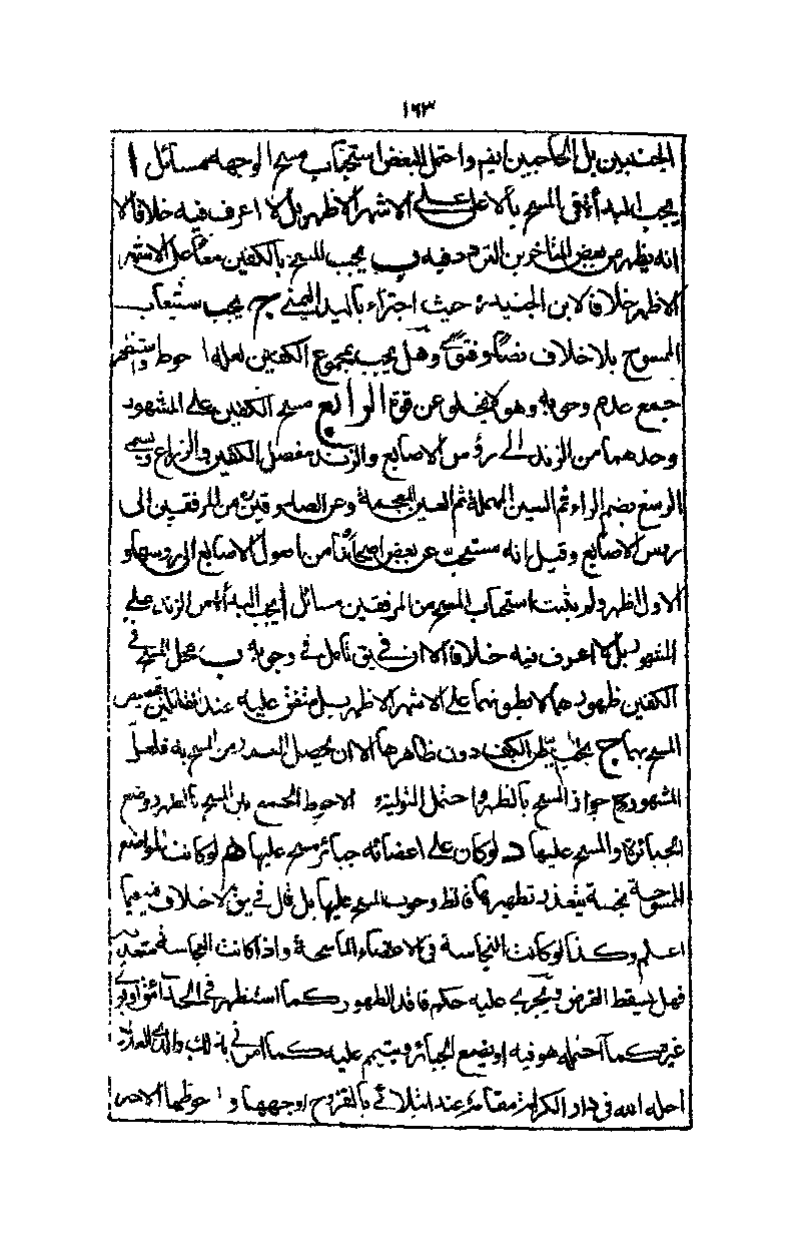 ١٦٣
الجنبين بل الحاجبين ايضم واحتمل البعض استحباب مسح الوجه مسائل ا
يجب البدأة فى المسح بالاعلى على الاشهر الاظهر بل لا اعرف فيه خلافا الا
انه يظهر من بعض المتاخرين التردد فيه ب يجب المسح بالكفين معا على الاشهر
الاظهر خلافا لابن الجنيد ره حيث اجتزاء باليد اليمنى ج يجب ستيعاب
الممسوح بلا خلاف نصا وفتوى وهل يجب بمجموع الكفين لعله ا حوط واستظهر
جمع عدم وجوبه وهو لا يخلو عن قوة الرابع مسح الكفين على المشهور
وحدهما من الزند الى رؤس الاصابع والزند مفصل الكفين والذراع ويسمى
الرسغ بضم الراء ثم السين المهملة ثم الغين المعجمة وعن الصدوقين من المرفقين الى
رؤس الاصابع وقيل انه مستحب عن بعض اصحابنا من اصول الاصابع الى رؤسها و
الاول اظهر ولم يثبت استحباب المسح من المرفقين مسائل ا يجب البدأة من الزند على
المشهور بل لا اعرف فيه خلافا الا ان فى يق تامل فى وجوبه ب محل المسح فى
الكفين ظهورهما لا بطونهما على الاشهر الاظهر بل متفق عليه عند القائلين بتخصيص
المسح بهما ج يجب بطن الكف دون ظاهرها الا ان يحصل العذر من المسح به فلعل
المشهور ح جواز المسح بالظهر واحتمل التولية و الاحوط الجمع بين المسح بالظهر ووضع
الجبائر والمسح عليها د لو كان على اعضائه جبائر مسح عليها هم لو كانت المواضع
الممسوحة نجسة يتعذر تطهيرها فالظ وجوب المسح عليها بل قال فى يق لا خلاف فيه فيما
اعلم وكذا لو كانت النجاسة فى الاعضاء الماسحة واذا كانت النجاسة متعدية
فهل يسقط الفرض ويجرى عليه حكم فاقد الطهور كما استظهر فى الحدائق او لو
غيره كما احتمله هو فيه او يضع الجبائر ويتيمم عليه كما امر فى به والدى العلامة
احله الله فى دار الكرامة مقامه عند ابتلائى بالقروح اوجهها و ا حوطها الاخير